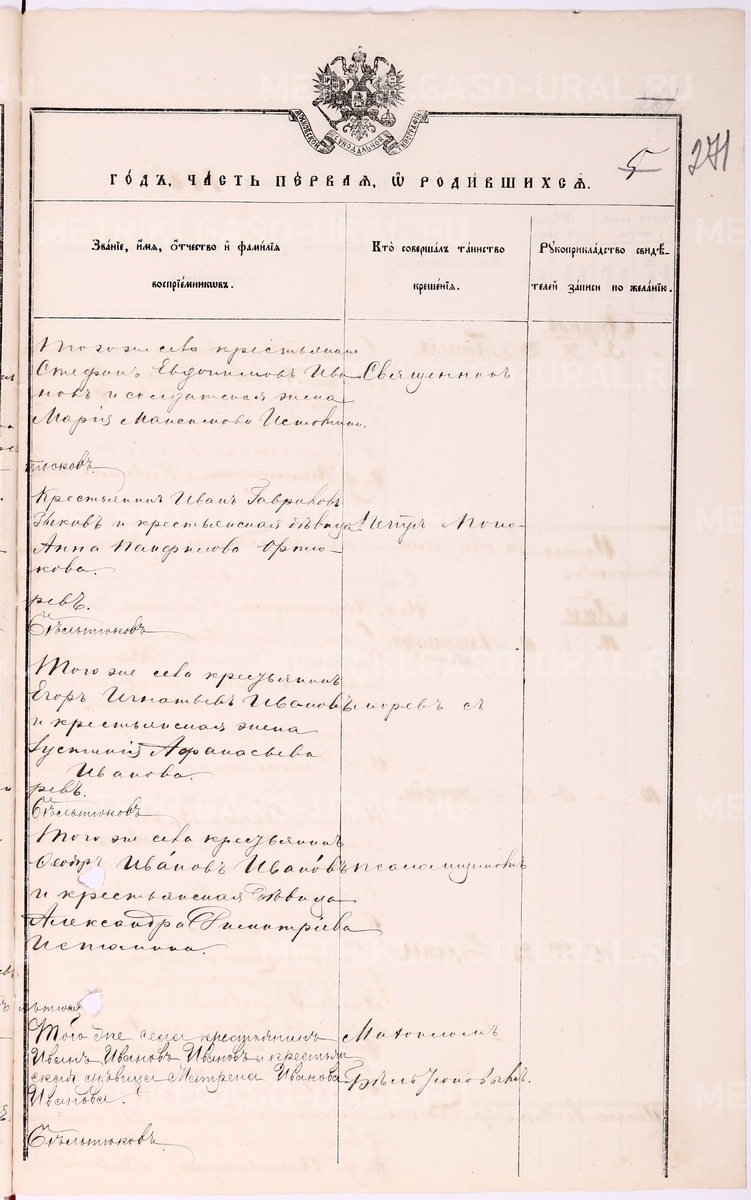 МОСКОВСКОЙ СѴНОДАЛЬНОЙ ТИПОГРАФІИ
271
5
ГО́ДЪ, ЧА́СТЬ ПЕ́РВАЯ, Ѿ РОДИ́ВШИХСѦ.
Зва́ніе, и҆́мя, ѻ҆́тчество и҆ фами́лія
воспріе́мникѡвъ.
Кто̀ соверша́лъ та́инство
креще́нія.
Рꙋкоприкла́дство свидѣ́-
телей за́писи по жела́нію.
Того же села крестьянинъ
Стефанъ Евдокимовъ Ива
новъ и солдатская жена
Марія Максимова Истомина.
Священникъ
тюковъ.
Крестьянинъ Иванъ Гавриловъ
Зыковъ и крестьянская дѣвица
Анна Панфилова
кова.
Петръ Пономаревъ съ
ревъ.
Стѣльтюковъ
Того же села крестьянинъ
Егоръ Игнатьевъ Ивановъ
и крестьянская жена
Іустинія Афанасьева
Иванова.
ревъ.
Стѣльтюковъ
Того же села крестьянинъ
Ѳеодоръ Ива́новъ Ивано́въ
и крестьянская дѣвица
Александра Димитріева
Истомина.
псаломщикомъ
льтюк
Того же села крестьянинъ
Иванъ Ивановъ Ивановъ и крестьян
ская дѣвица Матрена Иванова
Иванова.
Михаиломъ
Стѣльтюковъ